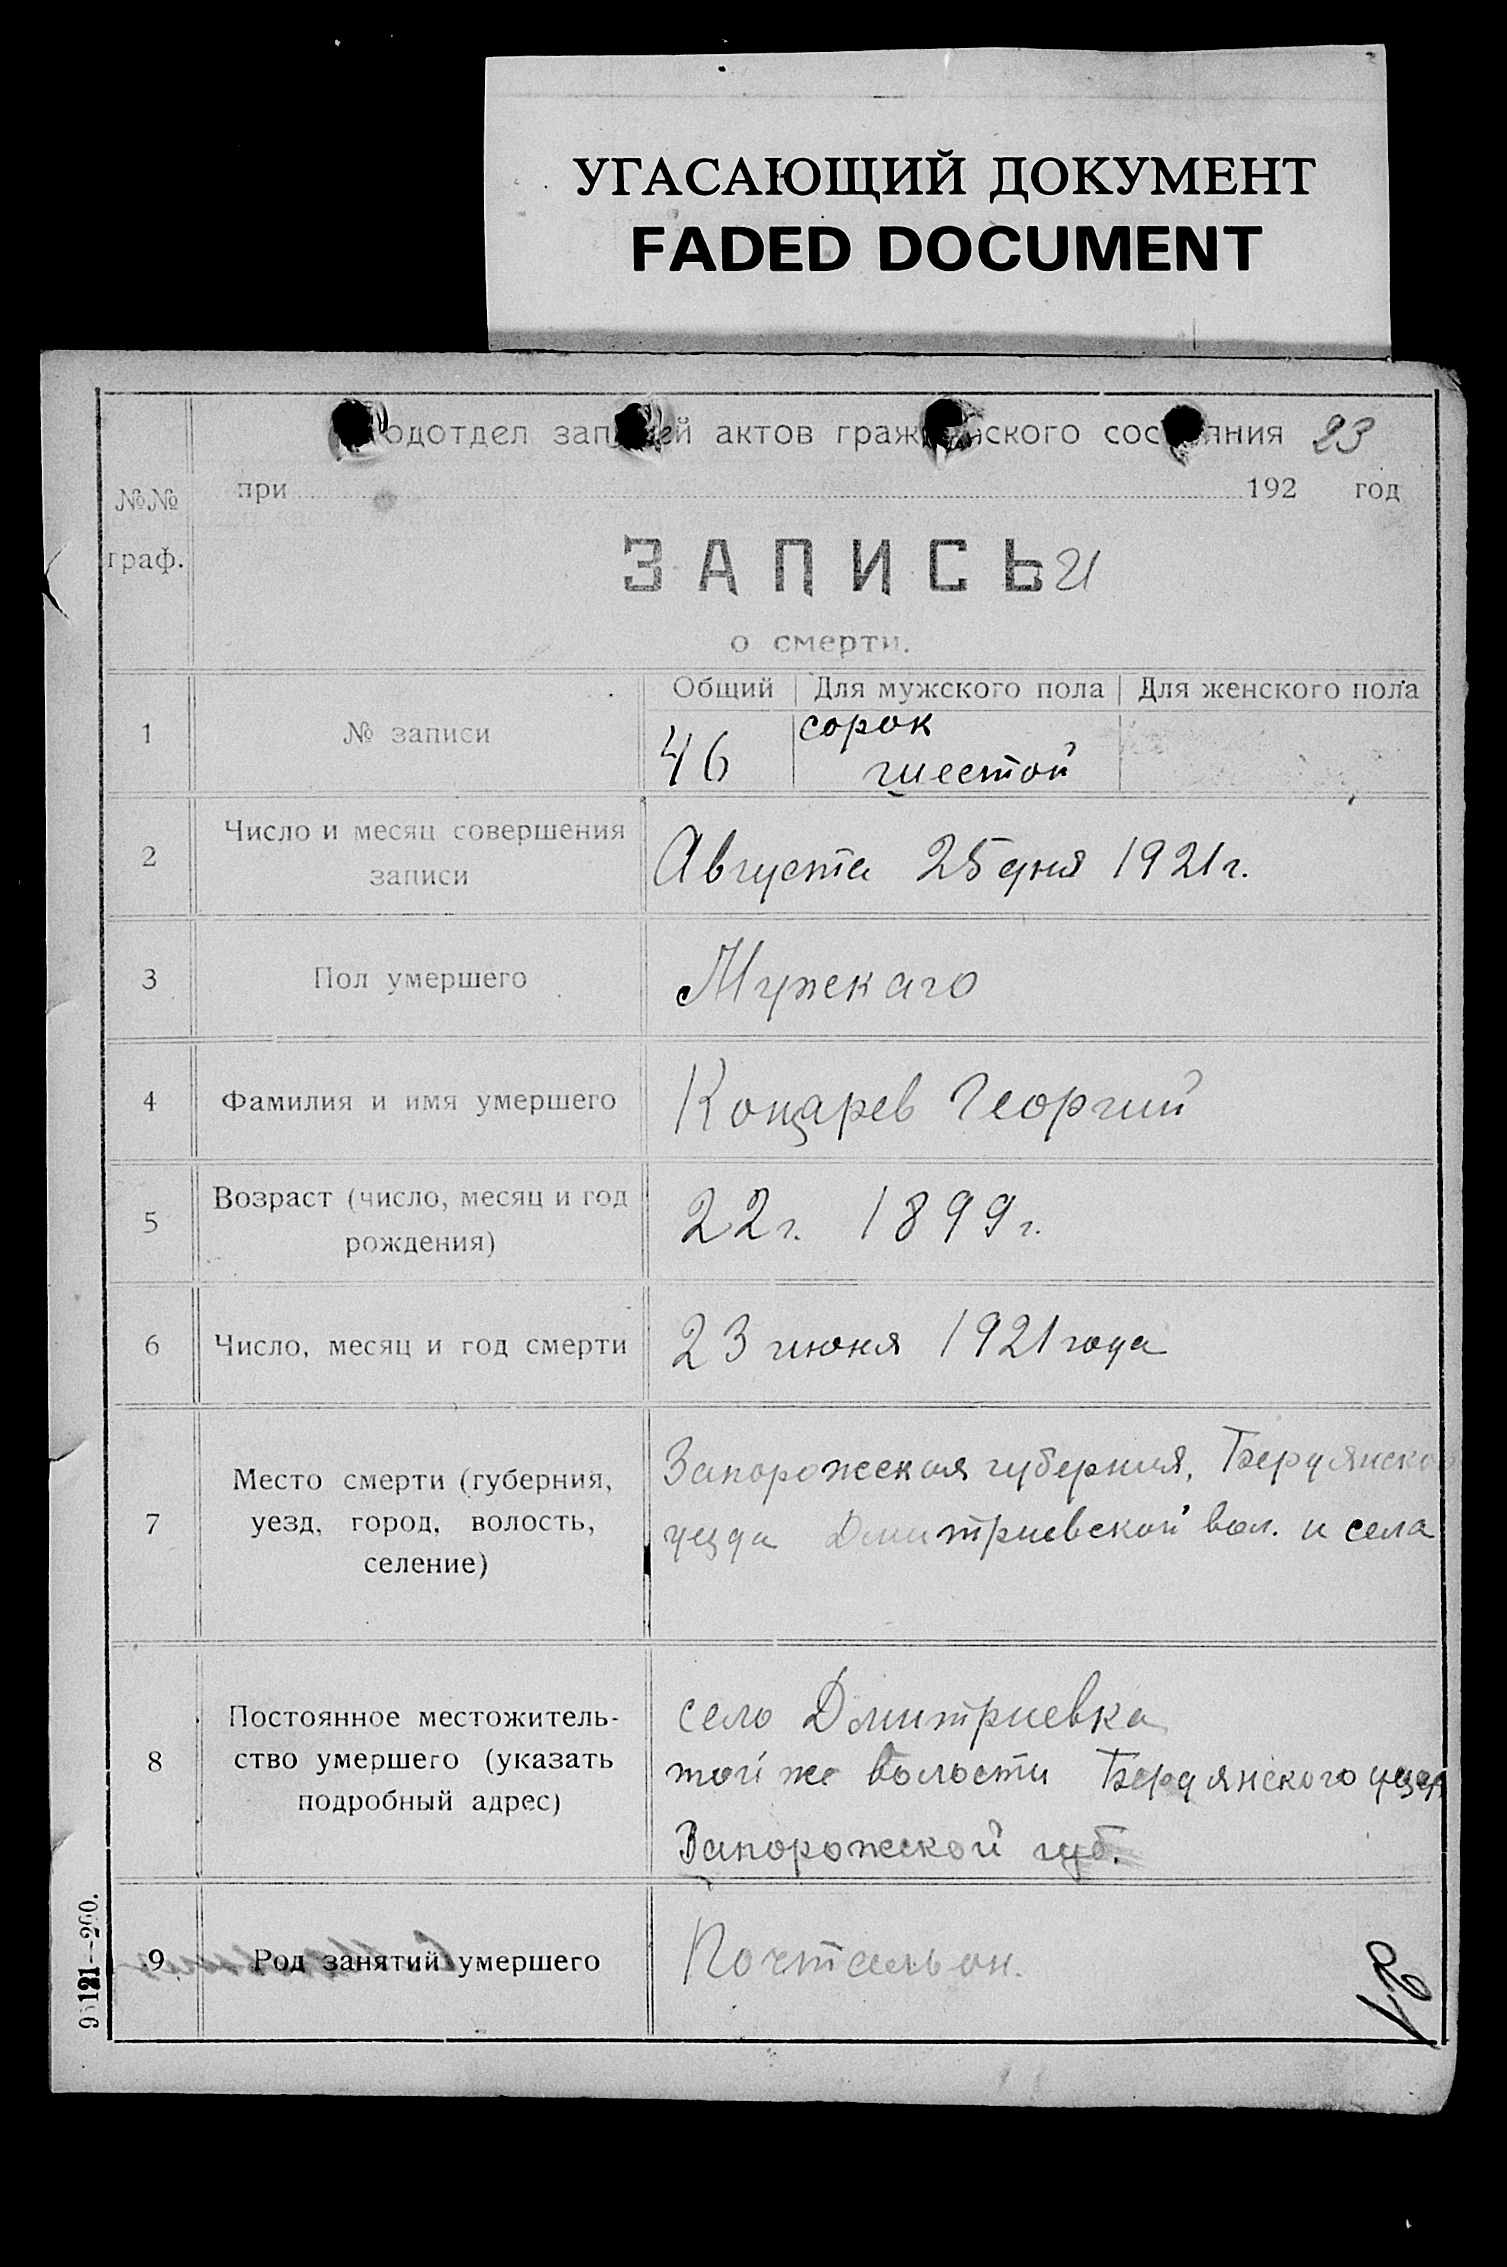 УГАСАЮЩИЙ ДОКУМЕНТ
FADED DOCUMENT
Подотдел записей актов гражданского состояния 23
№№ граф.
при 192 год
ЗАПИСЬ 21
о смерти.
Общий Для мужского пола Для женского пола
1 № записи 46 сорок
шестой
2 Число и месяц совершения
записи Августа 25 дня 1921 г.
3 Пол умершего Мужскаго
4 Фамилия и имя умершего Коцарев Георгий
5 Возраст (число, месяц и год
рождения) 22 г. 1899 г.
6 Число, месяц и год смерти 23 июня 1921 года
7 Место смерти (губерния,
уезд, город, волость,
селение) Запорожская губерния, Бердянско
уезда Дмитриевской вол. и села
8 Постоянное местожитель-
ство умершего (указать
подробный адрес) село Дмитриевка
той же волости Бердянского уезд
Запорожской губ.
9 Род занятий умершего Почтальон.